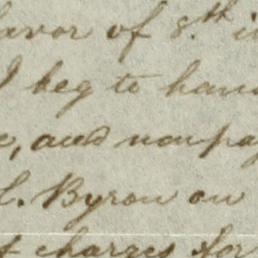 favor of 8.th
I beg to hand
and nonpay
Byron on
charges for